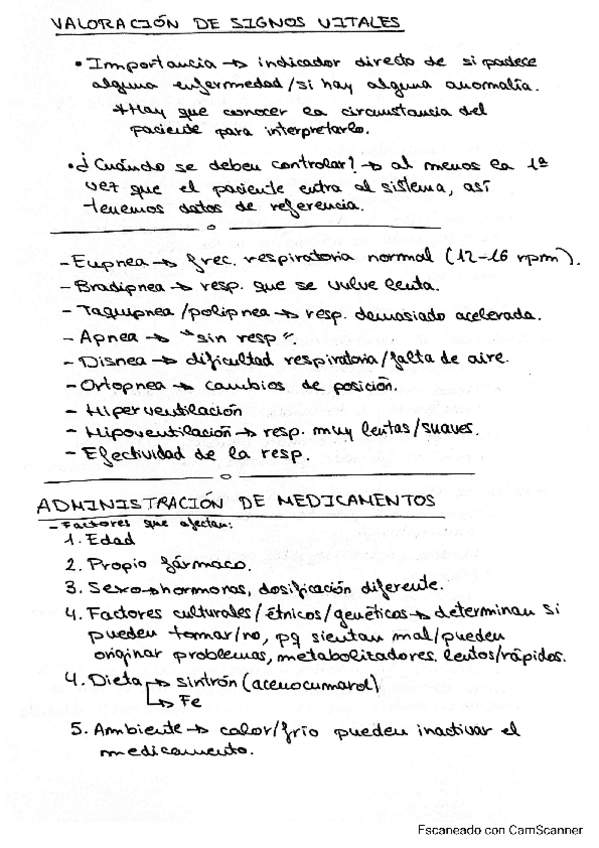 VALORACIÓN DE SIGNOS VITALES
• Importancia → indicador directo de si padece
alguna enfermedad/si hay alguna anomalía.
*Hay que conocer la circunstancia del
paciente para interpretarlo.
• ¿Cuándo se deben controlar? → al menos la 1ª
vez que el paciente entra al sistema, así
tenemos datos de referencia.
- Eupnea → frec. respiratoria normal (12-16 rpm).
- Bradipnea → resp. que se vuelve lenta.
- Taquipnea/polipnea → resp. demasiado acelerada.
- Apnea → "sin resp".
- Disnea → dificultad respiratoria/falta de aire.
- Ortopnea → cambios de posición.
- Hiperventilación
- Hipoventilación → resp. muy lentas/suaves.
- Efectividad de la resp.
ADMINISTRACIÓN DE MEDICAMENTOS
- Factores que afectan:
1. Edad
2. Propio fármaco.
3. Sexo → hormonas, dosificación diferente.
4. Factores culturales/étnicos/genéticos → determinan si
pueden tomar/no, pq sientan mal/pueden
originar problemas, metabolizadores lentos/rápidos.
4. Dieta → sintrón (acenocumarol)
→ Fe
5. Ambiente → calor/frío pueden inactivar el
medicamento.
Escaneado con CamScanner